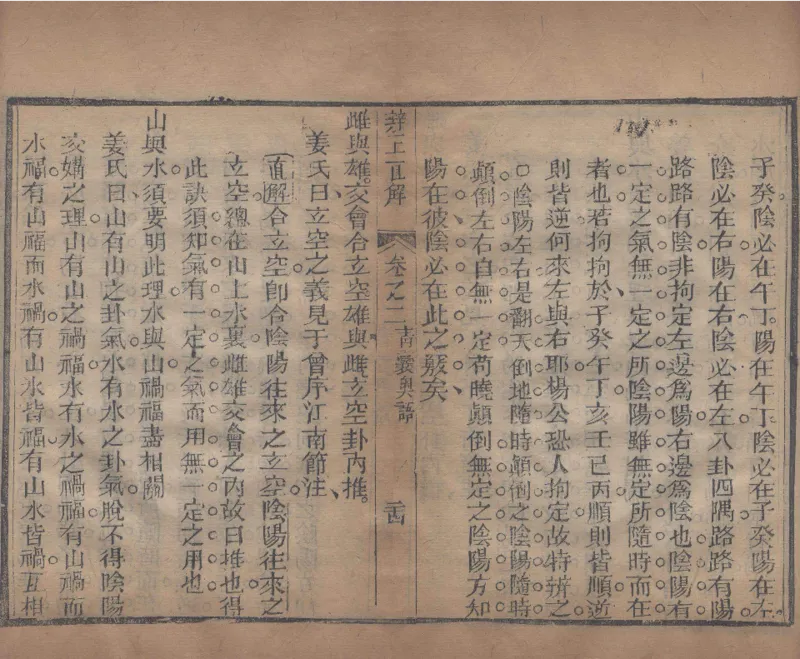 子癸陰必在午丁陽在午丁陰必在子癸陽在左
陰必在右陽在右陰必在左八卦四隅路路有陽
路路有陰非拘定左邊為陽右邊為陰也陰陽有
一定之氣無一定之所陰陽雖無定所隨時而在
者也若拘拘於子癸午丁亥壬巳丙順則皆順逆
則皆逆何來左與右耶楊公恐人拘定故特辨之
○陰陽左右是翻天倒地隨時顛倒之陰陽隨時
顛倒左右自無一定苟曉顛倒無定之陰陽方知
陽在彼陰必在此之竅矣
辯正直解 卷之二 青囊奧語 二十四
雌與雄交會合玄空雄與雌玄空卦內推
姜氏曰玄空之義見于曾序江南節注
直解合玄空卽合陰陽往來之玄空陰陽往來之
玄空總在山上水裏雌雄交會之內故曰推也得
此訣須知氣有一定之氣而用無一定之用也
山與水須要明此理水與山禍福盡相關
姜氏曰山有山之卦氣水有水之卦氣脫不得陰陽
交媾之理山有山之禍福水有水之禍福有山禍而
水福有山福而水禍有山水皆福有山水皆禍互相